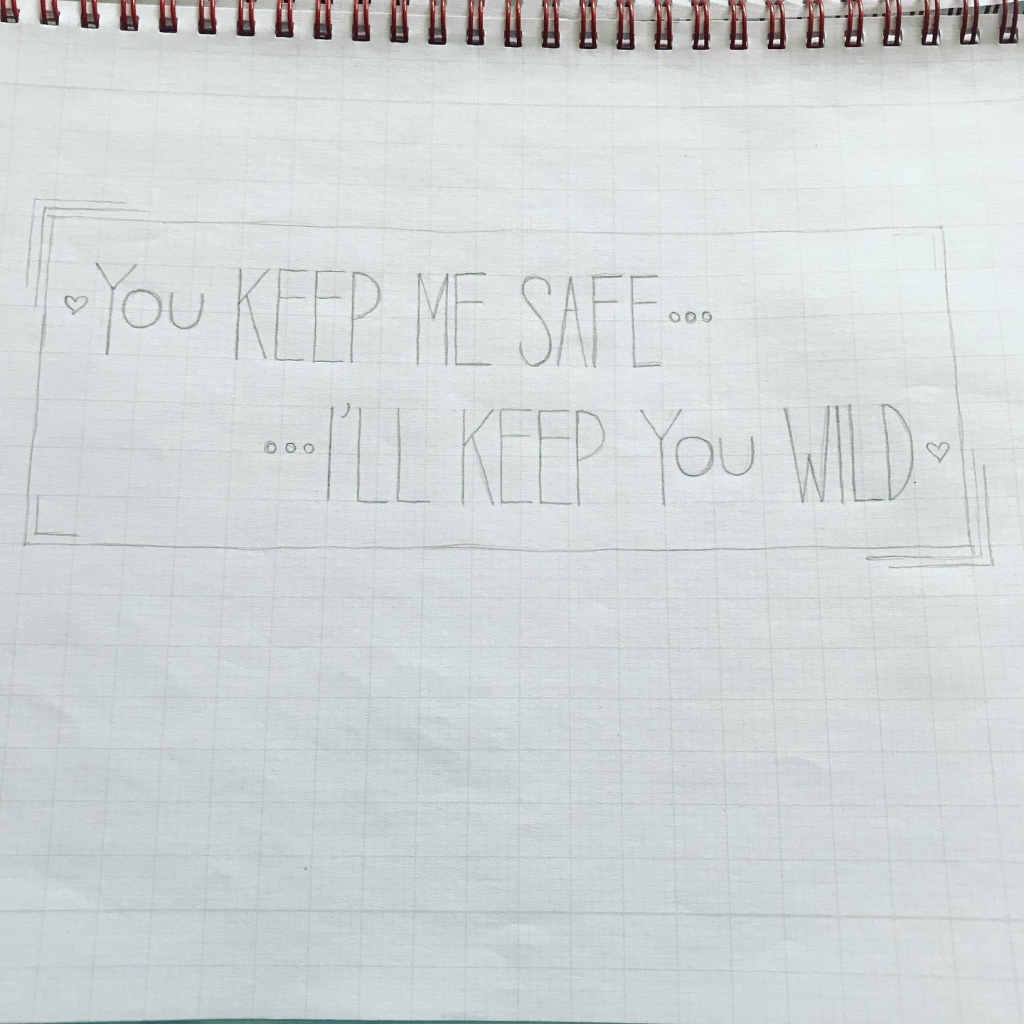 ♡You KEEP ME SAFE...
...I'LL KEEP You WILD♡